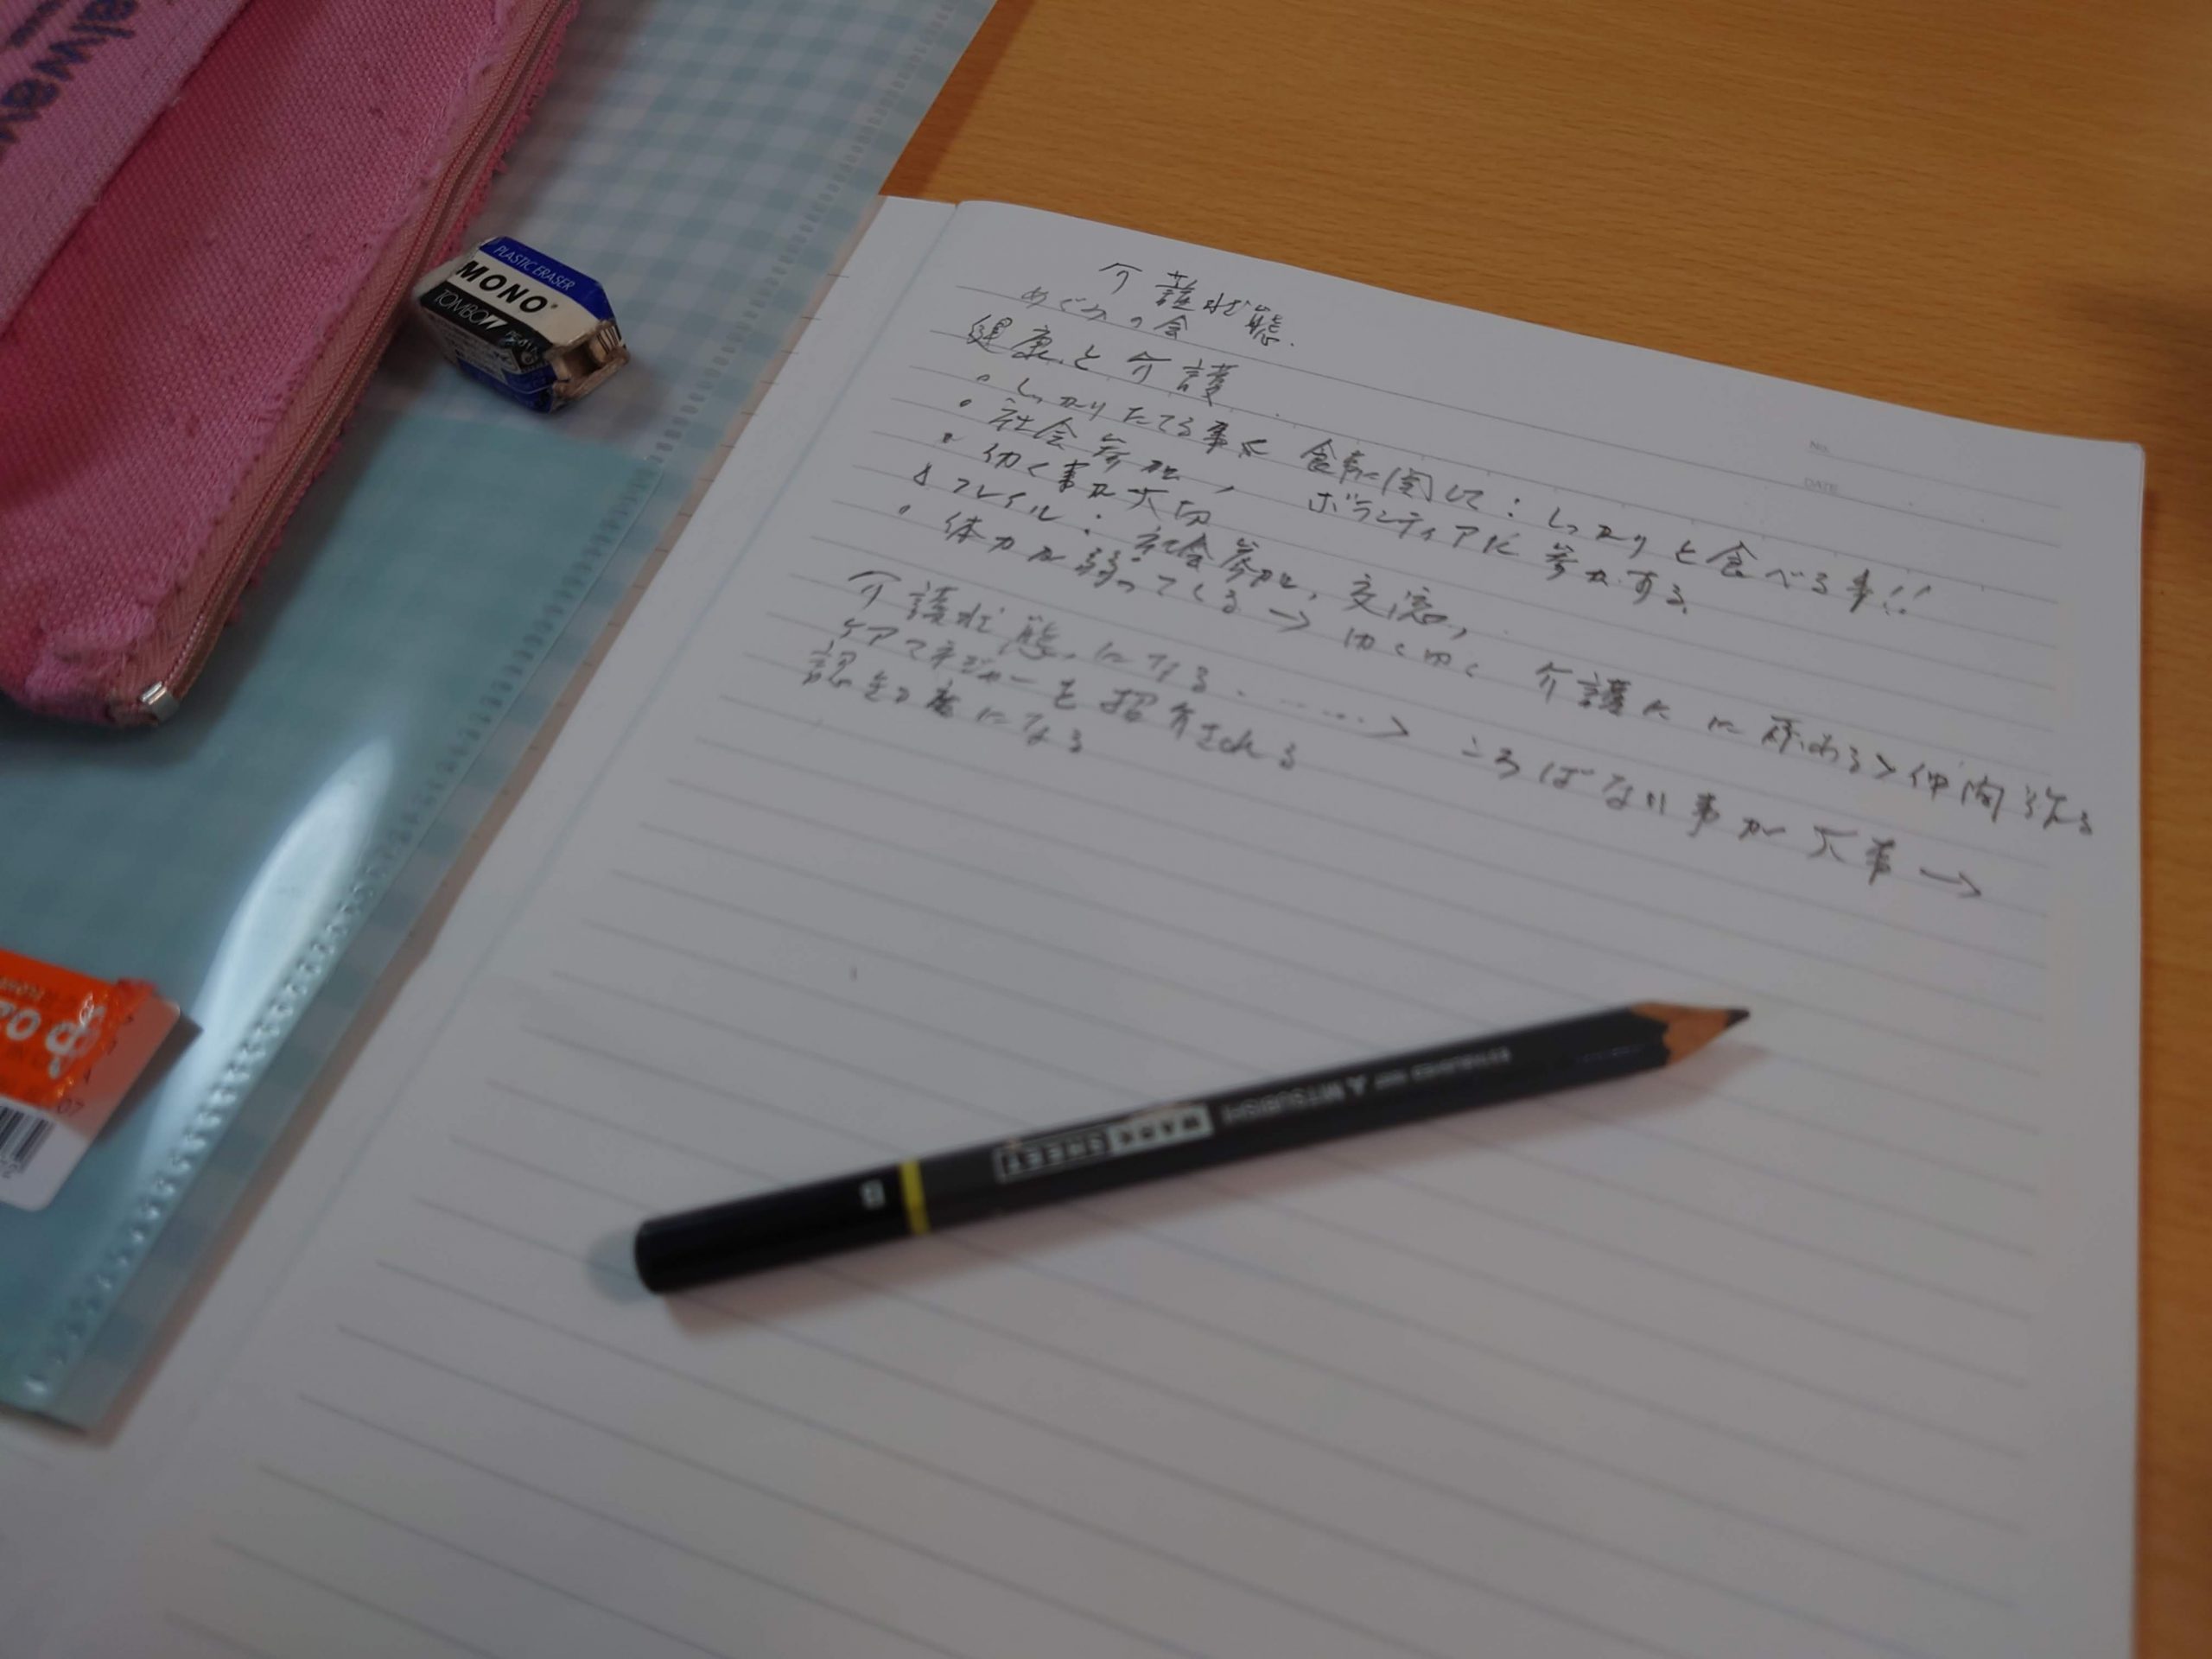 always
PLASTIC ERASER
MONO
TOMBOW
NO.
DATE
介護状態.
めぐみの会
健康と介護
・しっかりたてる事 食事に関して：しっかりと食べる事!!
・社会参加, ボランティアに参加する
・動く事が大切
フレイル：社会参加, 交流,
・体力が弱ってくる→ 介護 仲間
介護状態になる.……→ ころばない事が大事→
ケアマネジャーを紹介される
認知症になる
MITSUBISHI
MARK SHEET
B
07